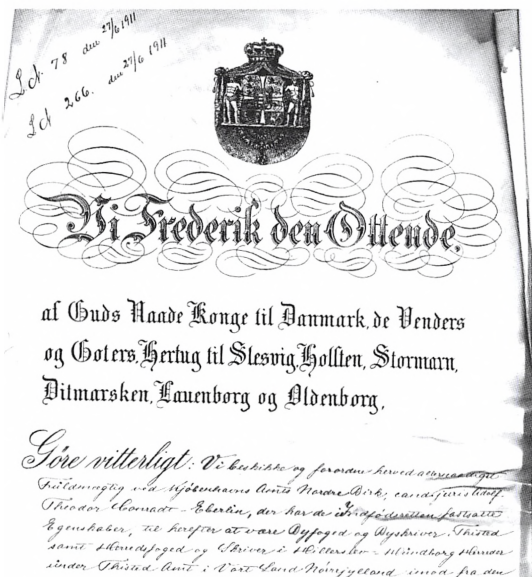 L№ 78 den 27/6 1911
L№ 266. den 27/6 1911
Vi Frederik den Ottende,
af Guds Naade Konge til Danmark, de Venders
og Goters, Hertug til Slesvig, Holsten, Stormarn,
Ditmarsken, Lauenborg og Oldenborg,
Göre vitterligt: Vi beskikke og forordne herved
Fuldmægtig ved Kjöbenhavns Amts Nordre Birk, cand. juris
Theodor Eberlin, der har de i Indfödsretten fastsatte
Egenskaber, til herefter at være Byfoged og Byskriver i Thisted
samt Herredsfoged og Skriver i Hillerslev - Hundborg Herreder
under Thisted Amt i Vort Land Nörrejylland imod fra den